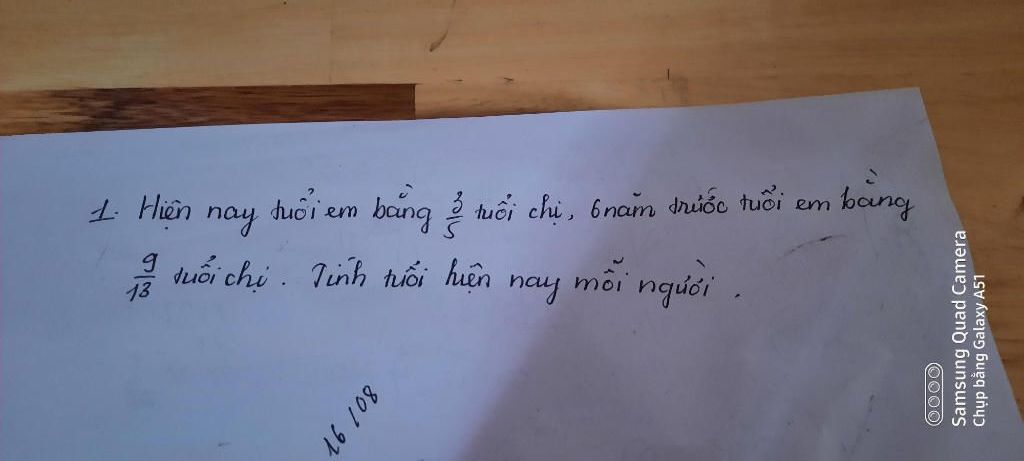 1. Hiện nay tuổi em bằng 3/5 tuổi chị, 6 năm trước tuổi em bằng
9/13 tuổi chị. Tính tuổi hiện nay mỗi người.
16/08
Samsung Quad Camera
Chụp bằng Galaxy A51